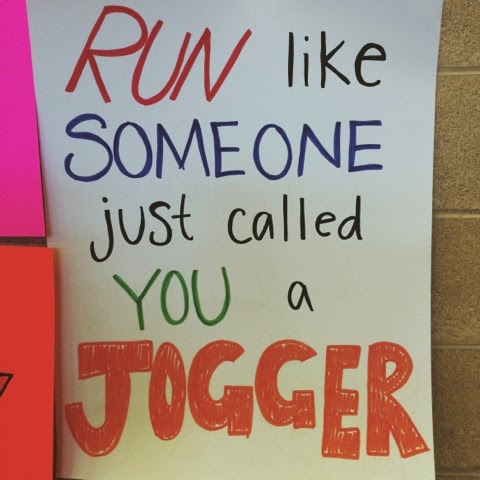 RUN like
SOMEONE
just called
YOU a
JOGGER